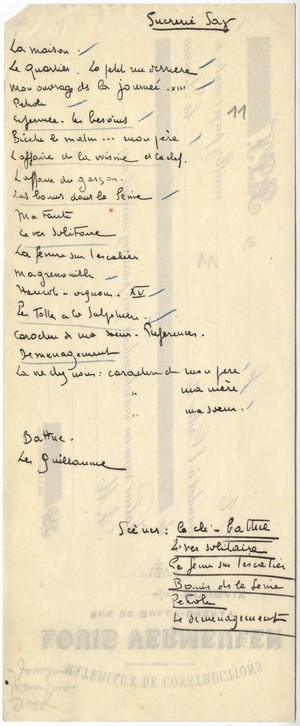 Sucrerie Say
La maison.
Le quartier. La petite rue derrière
Mon ouvrage ds la journée. XIII
Pétrole
enfermée. les besoins
Biche le matin... mon père
L'affaire de la voisine et la clef.
L'affaire du garçon.
Les bains dans la Seine
Ma tante
Le ver solitaire
La femme sur l'escalier
Ma grenouille
Haricot - oignons. XV
La Folle à la Salpêtr.
Caractère de ma soeur. Préférences.
Déménagement
La vie chez nous : caractère de mon père
" ma mère
" ma soeur.
Battue.
Les Guillaume
11
Scènes : la clé - battue
Le ver solitaire
La femme sur l'escalier
Bains ds la Seine
Pétrole
Le déménagement
LOUIS VERMEULEN
MATÉRIAUX DE CONSTRUCTIONS